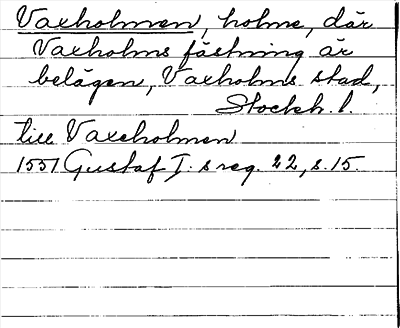 Vaxholmen, holme, där
Vaxholms fästning är
belägen, Vaxholms stad,
Stockh. l.
till Vaxeholmen
1551 Gustaf I. s reg. 22, s. 15.